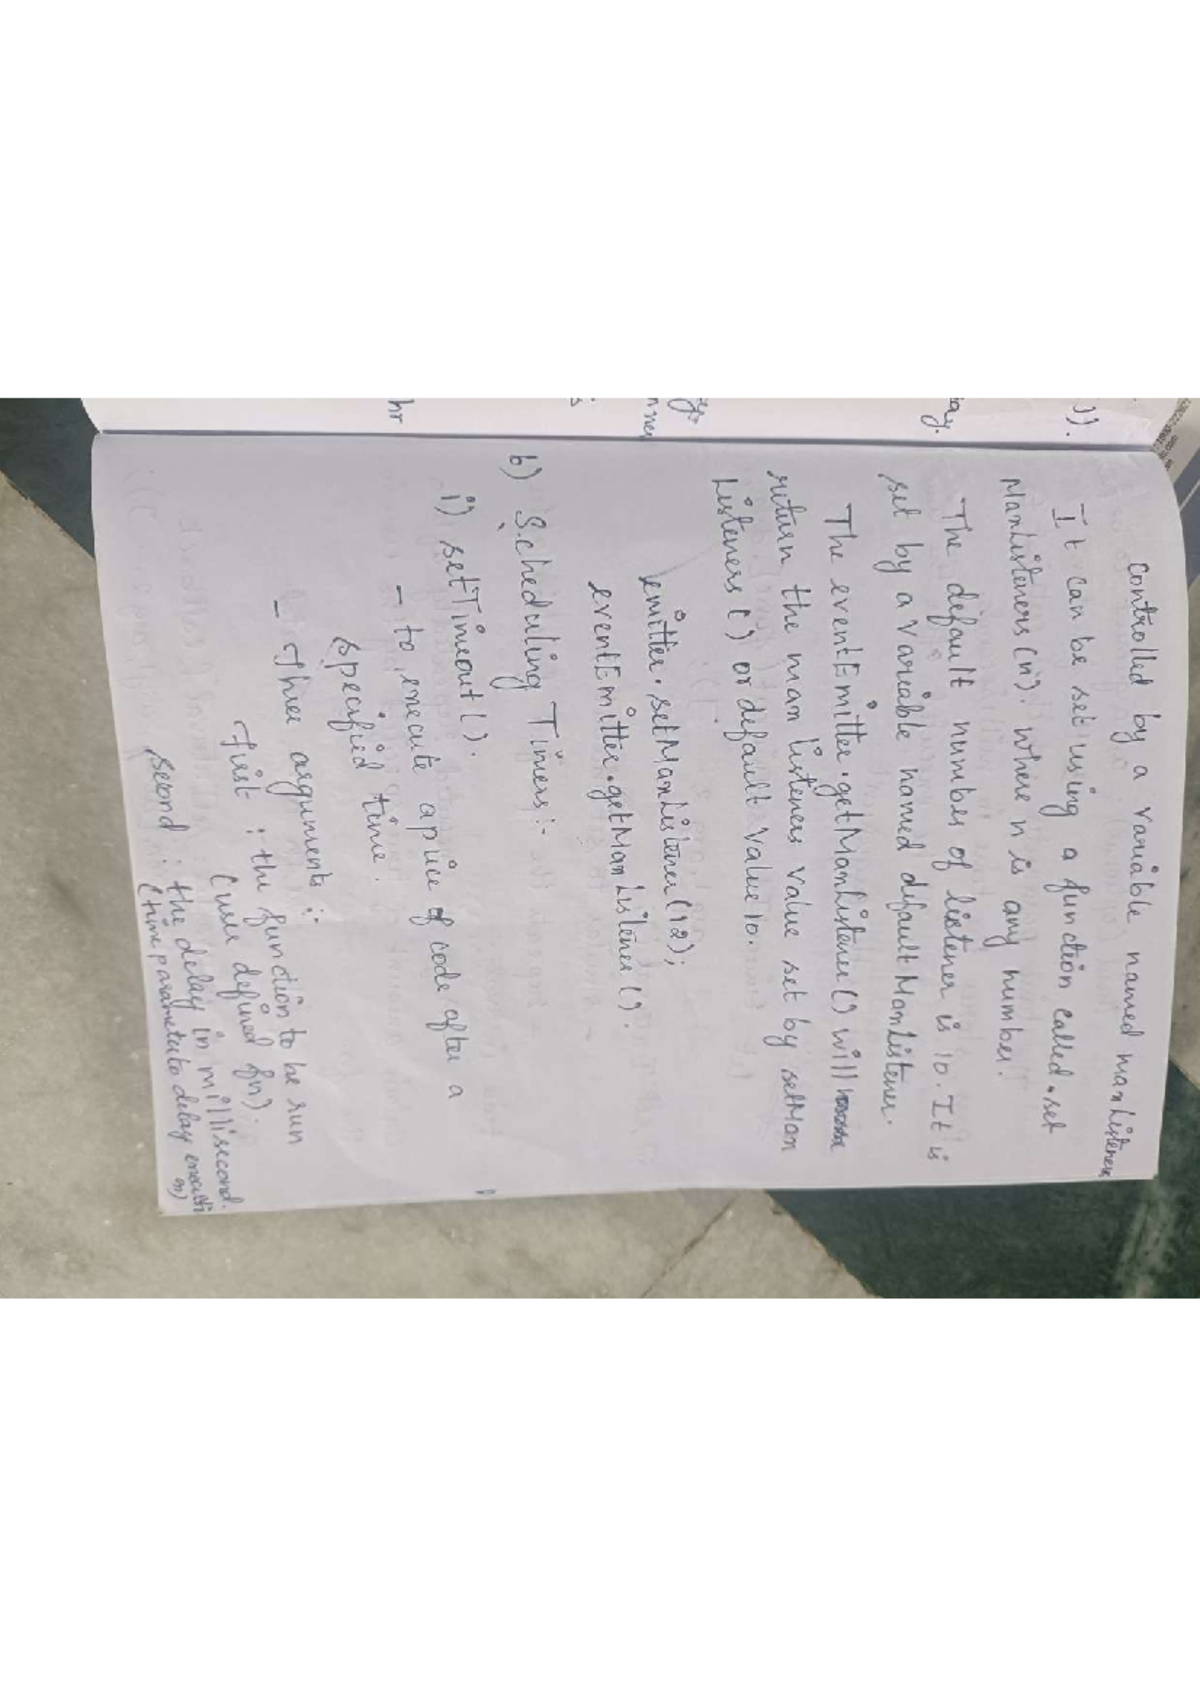 controlled by a variable named maxListeners
It can be set using a function called .set
MaxListeners(n). where n is any number.
The default number of listener is 10. It is
set by a variable named defaultMaxListener.
The eventEmitter.getMaxListener() will
return the max listeners value set by setMax
Listeners() or default value 10.
emitter.setMaxListener(12);
eventEmitter.getMaxListener().
b) Scheduling Timers :-
i) setTimeout().
- to execute a piece of code after a
specified time.
- Three arguments :-
First : the function to be run
(user defined fn).
second : the delay in millisecond.
(time parameter to delay executi
on)
)).
ay.
hr